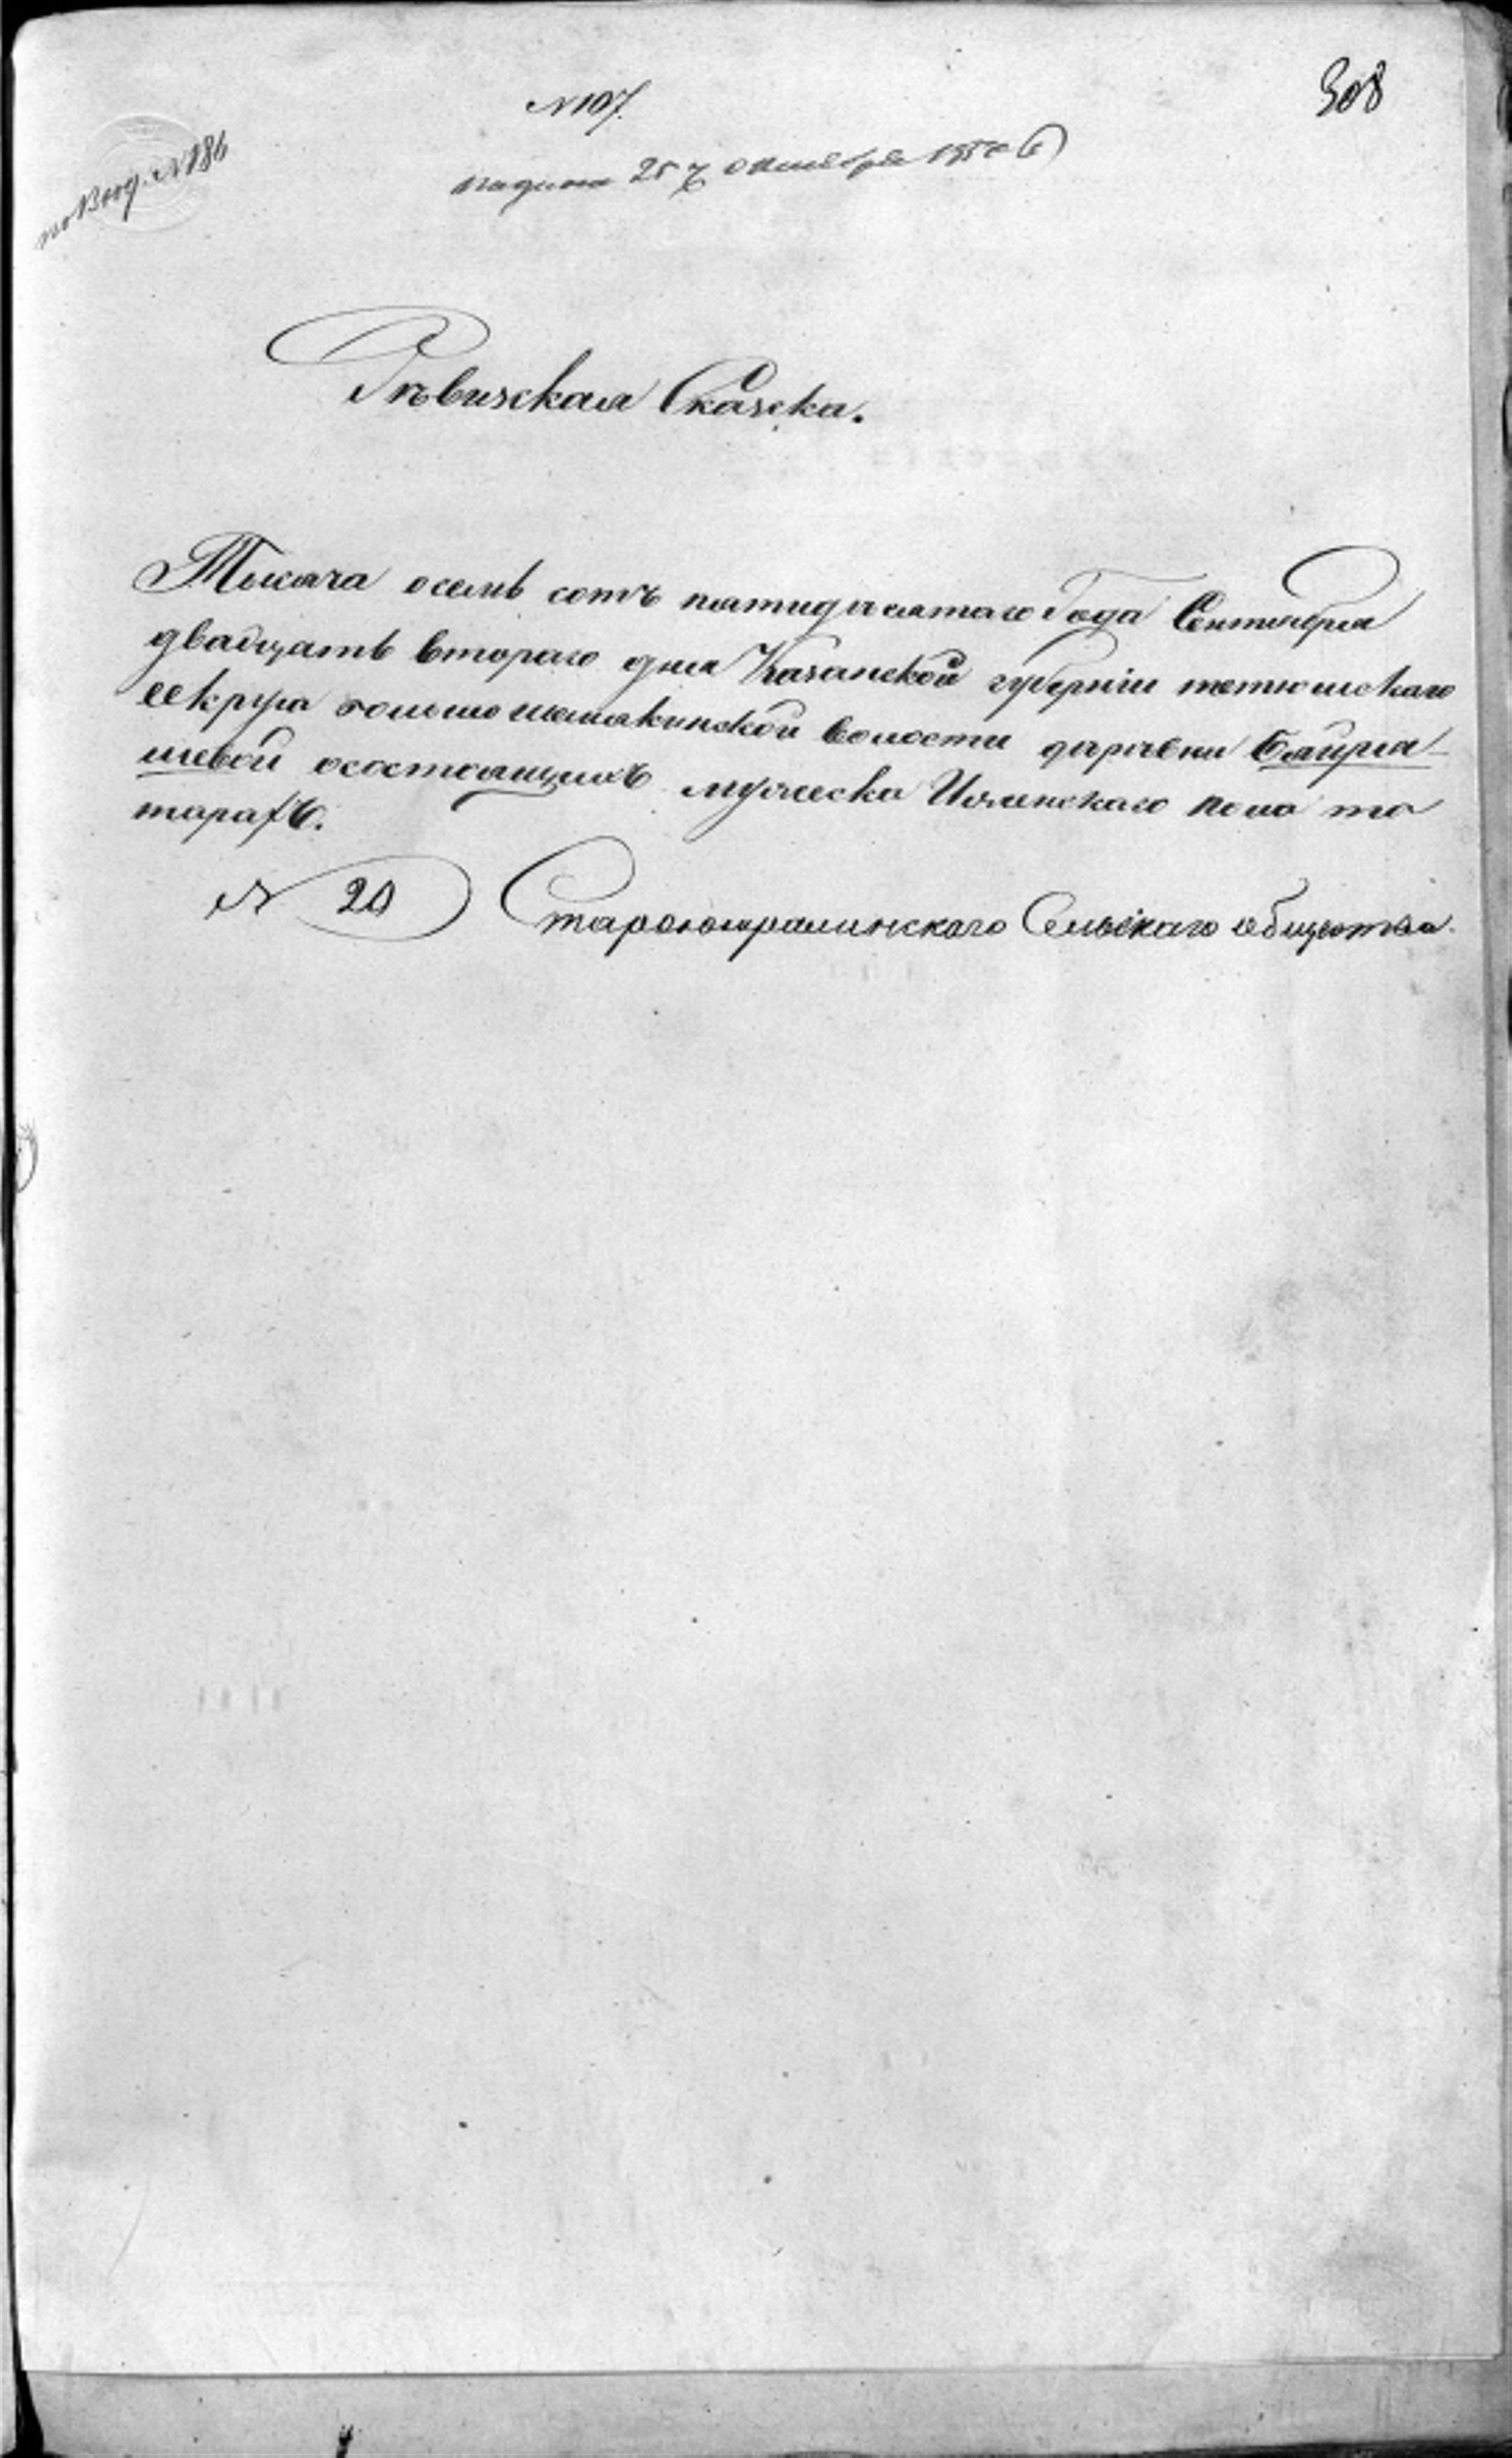 308
№ 107.
Подана 25 октября 1850 г
по Вход. № 186
Рѣвизская Сказска.
Тысяча осемь сотъ пятидесятаго Года Сентября
двадцать втораго дня Казанской губерніи тетюшскаго
округа большешемякинской волости деревни Байря-
шевой осостоящихъ мужеска И женскаго пола та
тарахъ.
№ 20 Староюмралинскаго Сельскаго общества.